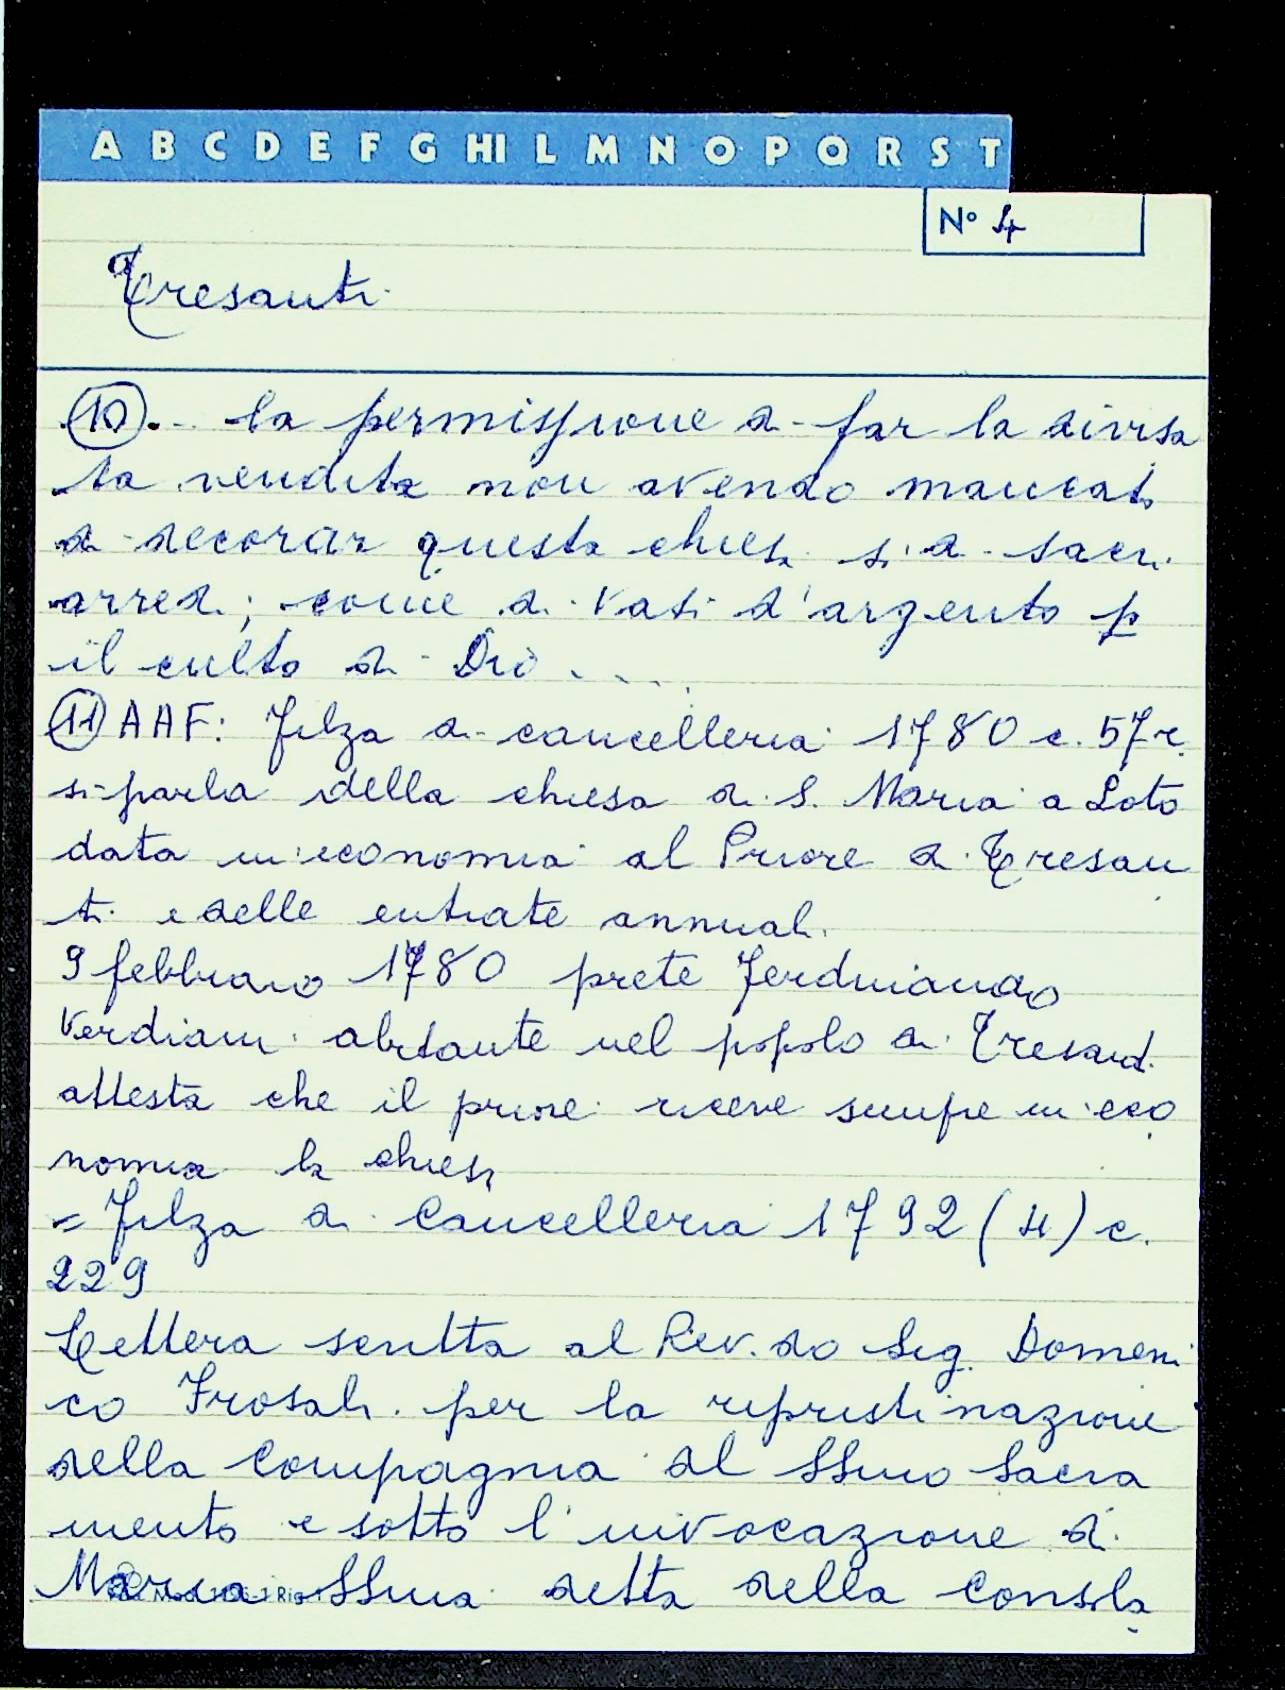 A B C D E F G HI L M N O P Q R S T
N° 4
Tresanti
(10)... la permissione di far la divisa
ta vendita non avendo mancato
di decorar questa chiesa sì di sacri
arredi; come di vasi d'argento p
il culto di Dio .....
(11) AAF: Filza di cancelleria 1780 c. 57r
si parla della chiesa di S. Maria a Loto
data in economia al Priore di Tresan
ti e delle entrate annuali.
9 febbraio 1780 prete Ferdinando
Verdiani abitante nel popolo di Tresanti
attesta che il priore riceve sempre in eco
nomia la chiesa
= Filza di Cancelleria 1792 ( ) c.
229
Lettera scritta al Rev.do Sig. Domeni
co Frosali per la ripristinazione
della Compagnia del SSmo Sacra
mento e sotto l'invocazione di
Maria SSma detta della Consola